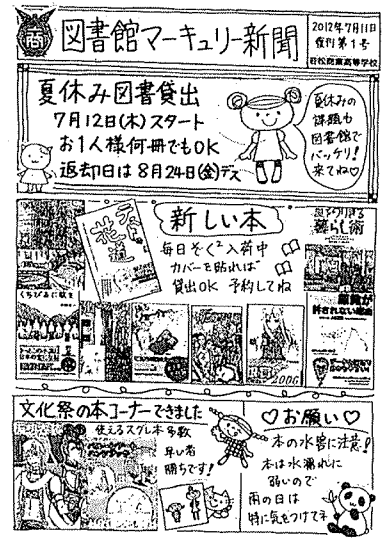 商
図書館マーキュリー新聞
2012年7月11日
復刊第1号
若松商業高等学校
夏休み図書貸出
7月12日(木)スタート
お1人様何冊でもOK
返却日は8月24日(金)デス
夏休みの
課題も
図書館で
バッチリ!
来てね♡
新しい本
毎日ぞくぞく入荷中
カバーを貼れば
貸出OK 予約してね
くちびるに歌を
花道
暮らし術
2006
文化祭の本コーナーできました
使えるスグレ本多数
早い者
勝ちです!
♡お願い♡
本の水害に注意!
本は水濡れに
弱いので
雨の日は
特に気をつけてネ